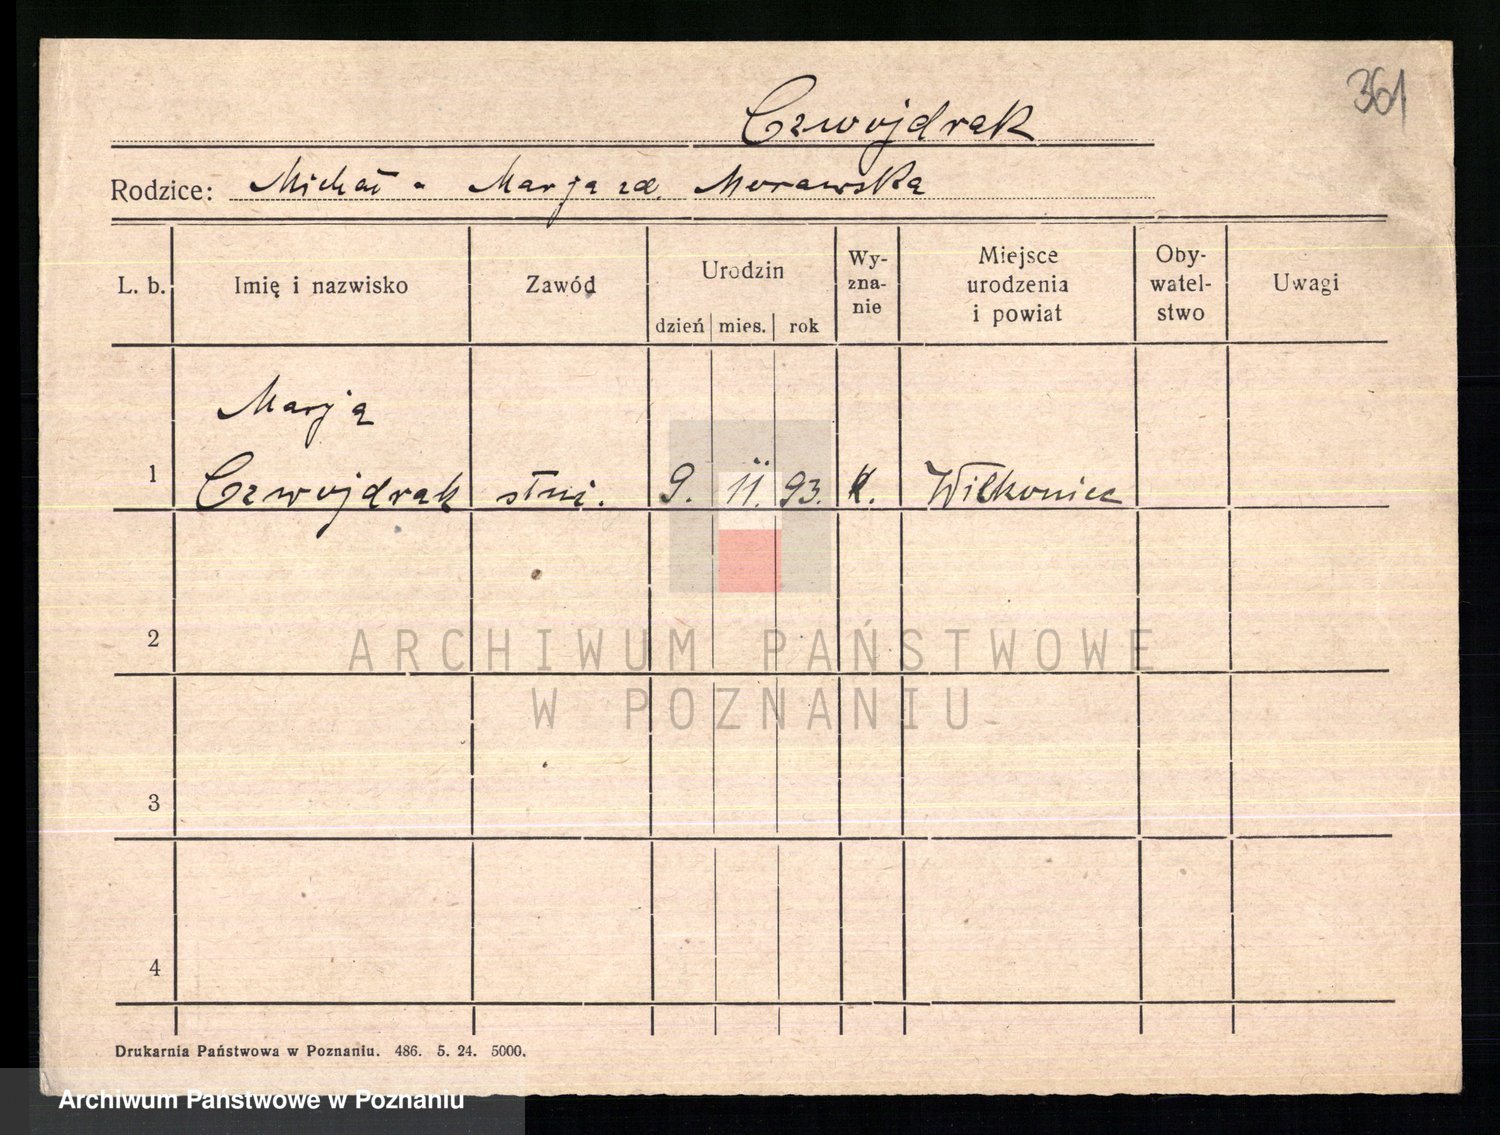 361
Czwojdrak
Rodzice: Michał - Marja zd. Morawska
L. b. Imię i nazwisko Zawód Urodzin dzień mies. rok Wy-zna-nie Miejsce urodzenia i powiat Oby-watel-stwo Uwagi
Marja
1 Czwojdrak służ. 9. 11. 93. k. Wilkonice
2
3
4
ARCHIWUM PAŃSTWOWE
W POZNANIU
Drukarnia Państwowa w Poznaniu. 486. 5. 24. 5000.
Archiwum Państwowe w Poznaniu